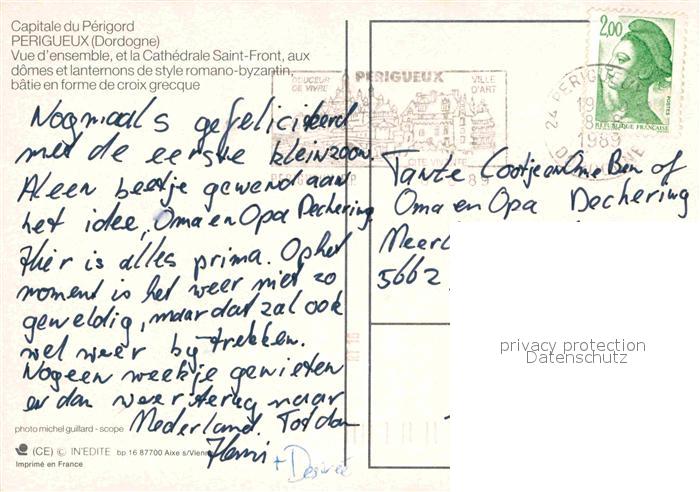 Capitale du Périgord
PERIGUEUX (Dordogne)
Vue d'ensemble, et la Cathédrale Saint-Front, aux
dômes et lanternons de style romano-byzantin,
bâtie en forme de croix grecque
Nogmaals gefeliciteerd
met de eerste kleinzoon.
Al een beetje gewend aan
het idee, Oma en Opa Dechering
Hier is alles prima. Op het
moment is het weer niet zo
geweldig, maar dat zal ook
wel weer bij trekken.
Nog een weekje genieten
en dan weer terug naar
Nederland. Tot dan
Henri + Desirée
photo michel guillard - scope
(CE) © IN'EDITE bp 16 87700 Aixe s/Vienne
Imprimé en France
DOUCEUR
DE VIVRE
PERIGUEUX
VILLE
D'ART
CITE VIVANTE
24 PERIGUEUX
1989
DORDOGNE
2,00
POSTES
REPUBLIQUE FRANÇAISE
Tante Cootje en Ome Ben of
Oma en Opa Dechering
Meerl
5662
privacy protection
Datenschutz